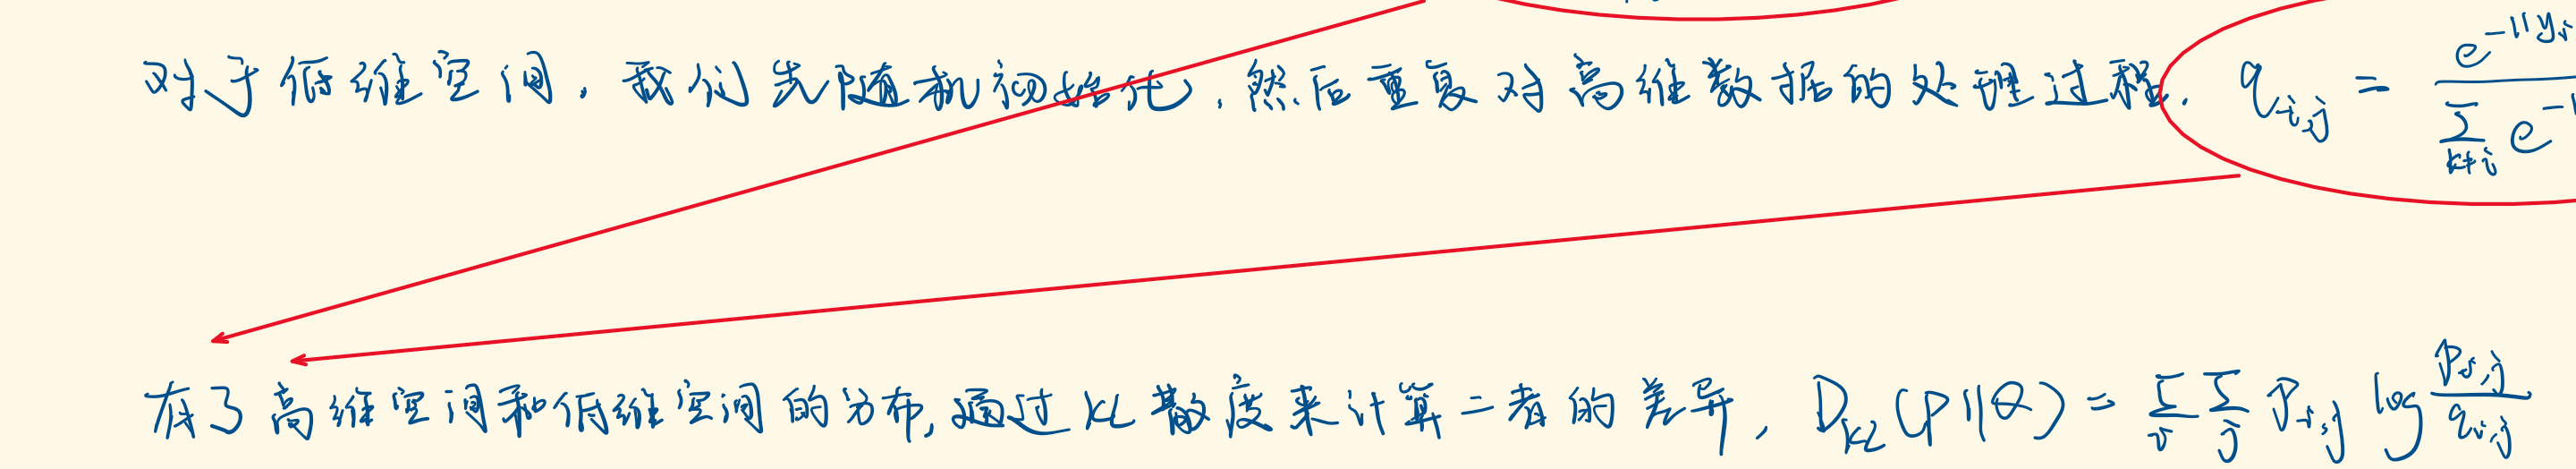 对于低维空间，我们先随机初始化，然后重复对高维数据的处理过程. q_{i,j} = \frac{e^{-||y_i}}{\sum_{k≠i} e^{-|}}
有了高维空间和低维空间的分布,通过KL散度来计算二者的差异, D_{KL}(P||Q) = \sum_i \sum_j P_{i,j} log \frac{P_{i,j}}{q_{i,j}}